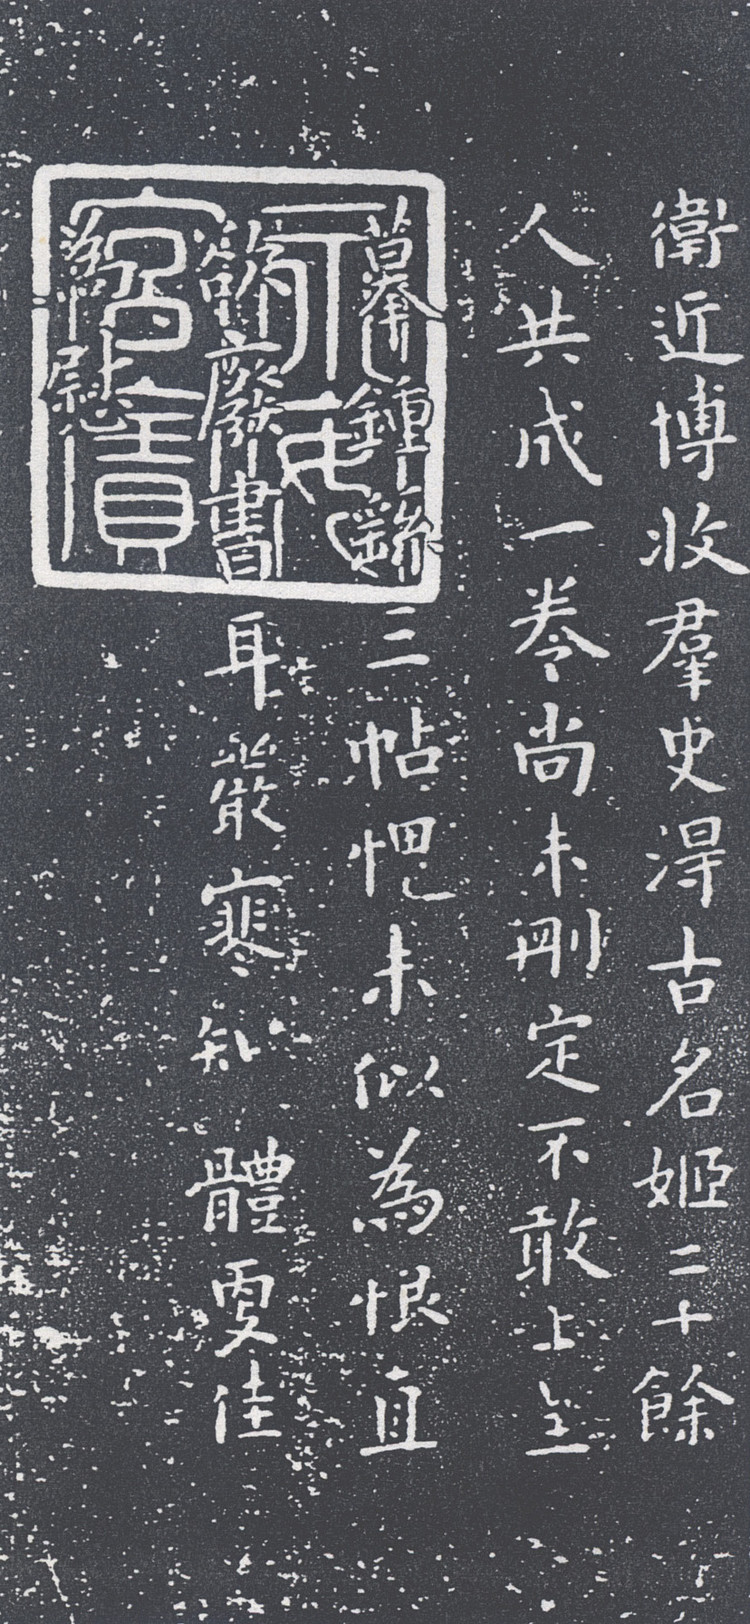 衛近博收羣史淂古名姬二十餘
人共成一卷尚未刪定不敢上
摹鍾繇三帖愧未似為恨直
欲廢書耳嚴寒知體更佳
為慰